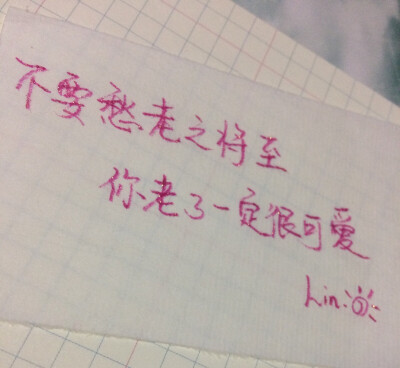 不要愁老之将至
你老了一定很可爱
Lin